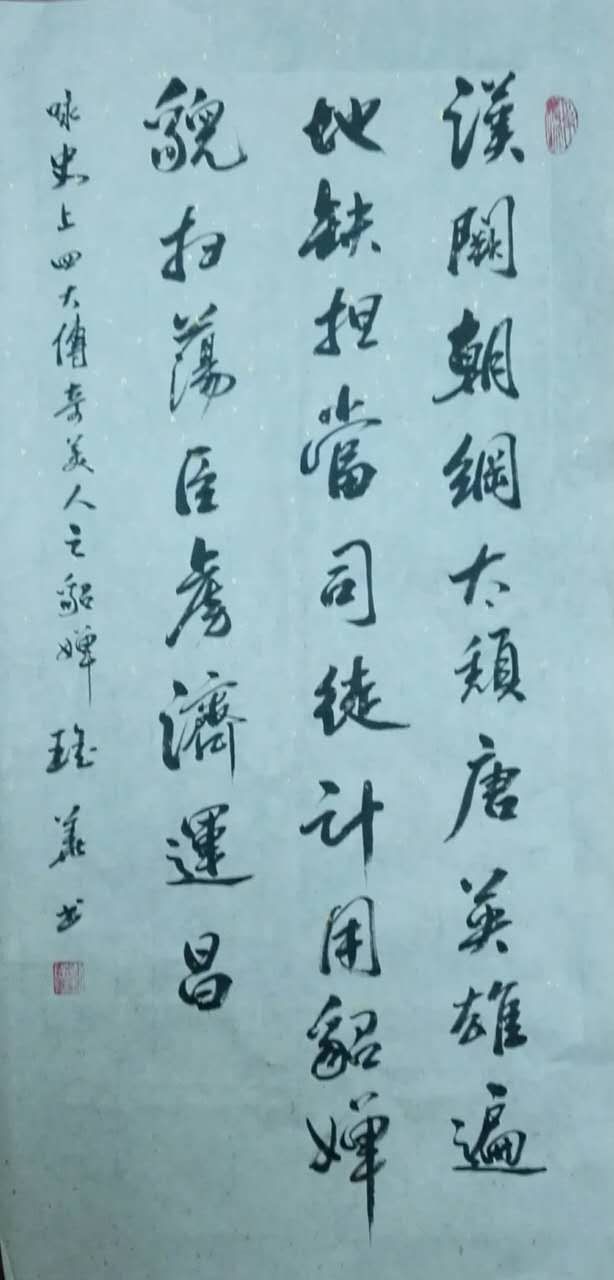 漢闕朝綱太頹唐英雄遍
地缺担當司徒計用貂嬋
貌扫蕩臣虜濟運昌
咏史上四大傳奇美人之貂嬋 瑤華书